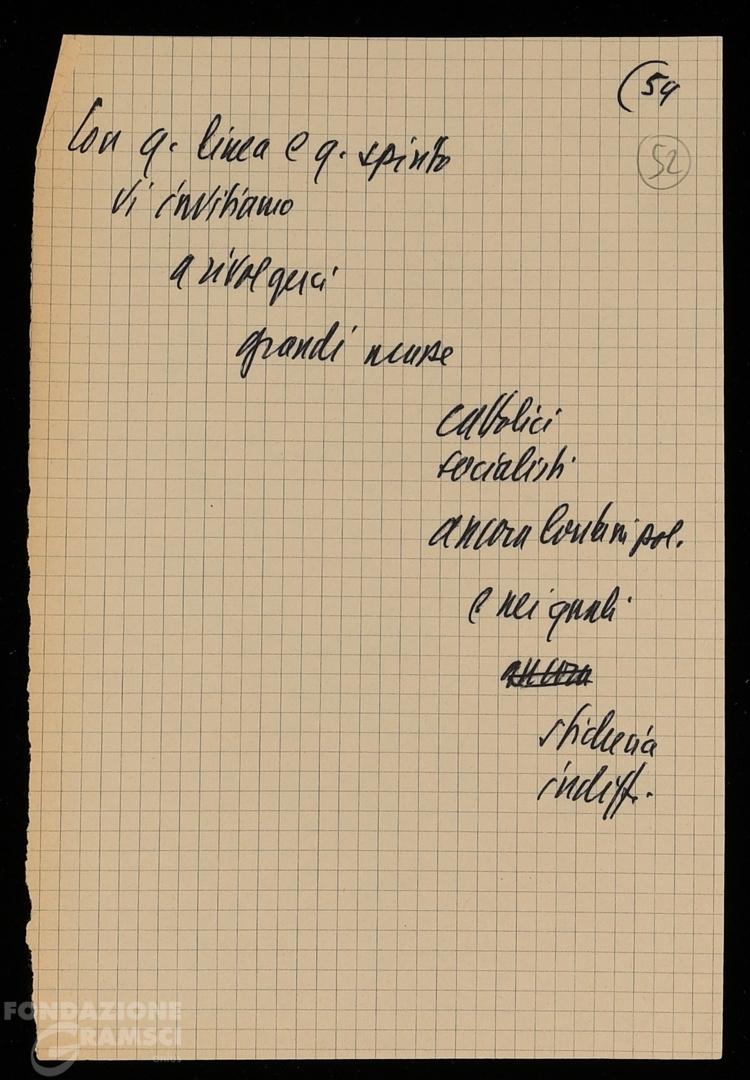 (54
52
Con q. linea e q. spirito
vi invitiamo
a rivolgerci
grandi masse
cattolici
socialisti
ancora lontani pol.
e nei quali
ancora
sfiducia
indiff.
FONDAZIONE
GRAMSCI